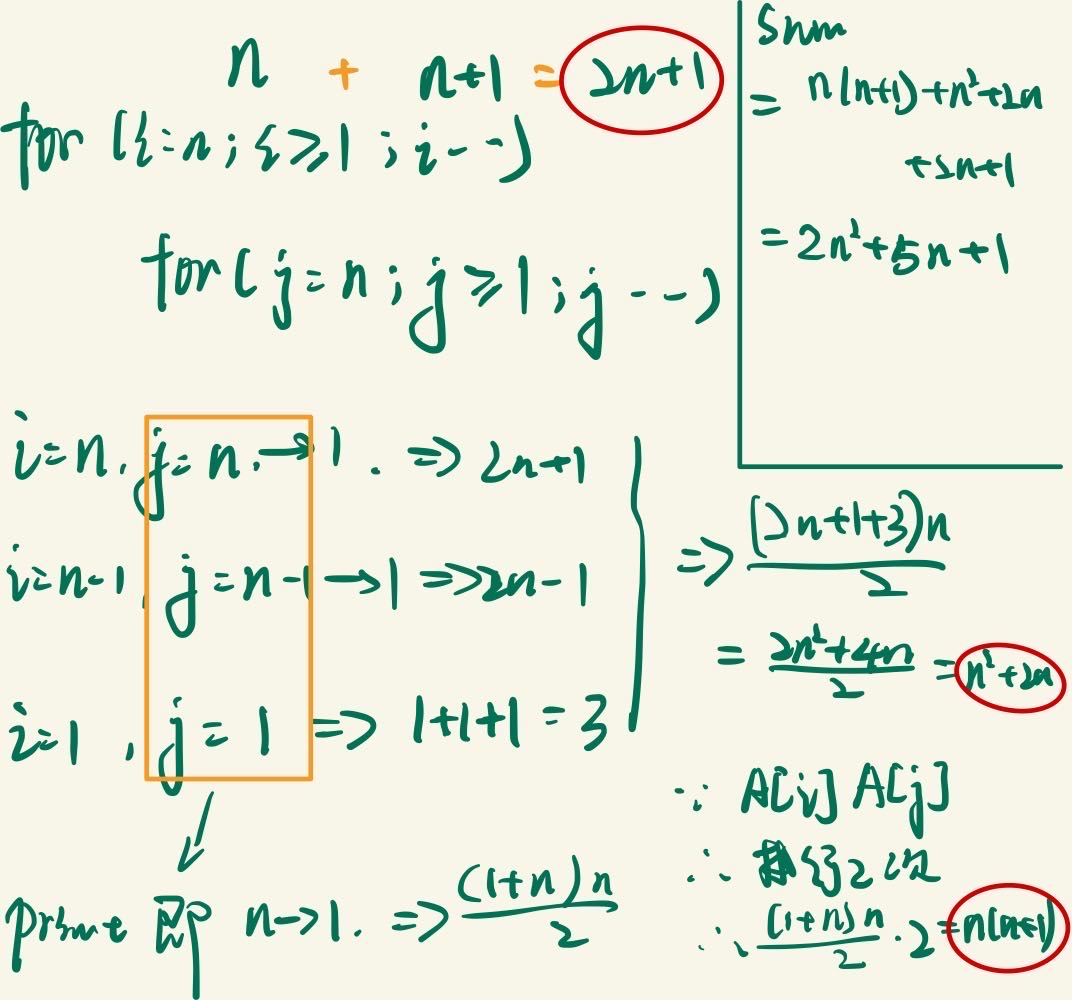 n + n+1 = 2n+1
for (i=n; i≥1; i--)
for (j=n; j≥1; j--)
i=n, j=n, → 1. => 2n+1
i=n-1, j=n-1 → 1 => 2n-1
i=1, j=1 => 1+1+1=3
=> (2n+1+3)n / 2
= 2n²+4n / 2 = n²+2n
print 即 n→1. => (1+n)n / 2
∵ A[i] A[j]
∴ 2次
∴ (1+n)n / 2 · 2 = n(n+1)
Sum
= n(n+1)+n²+2n
+2n+1
= 2n²+5n+1